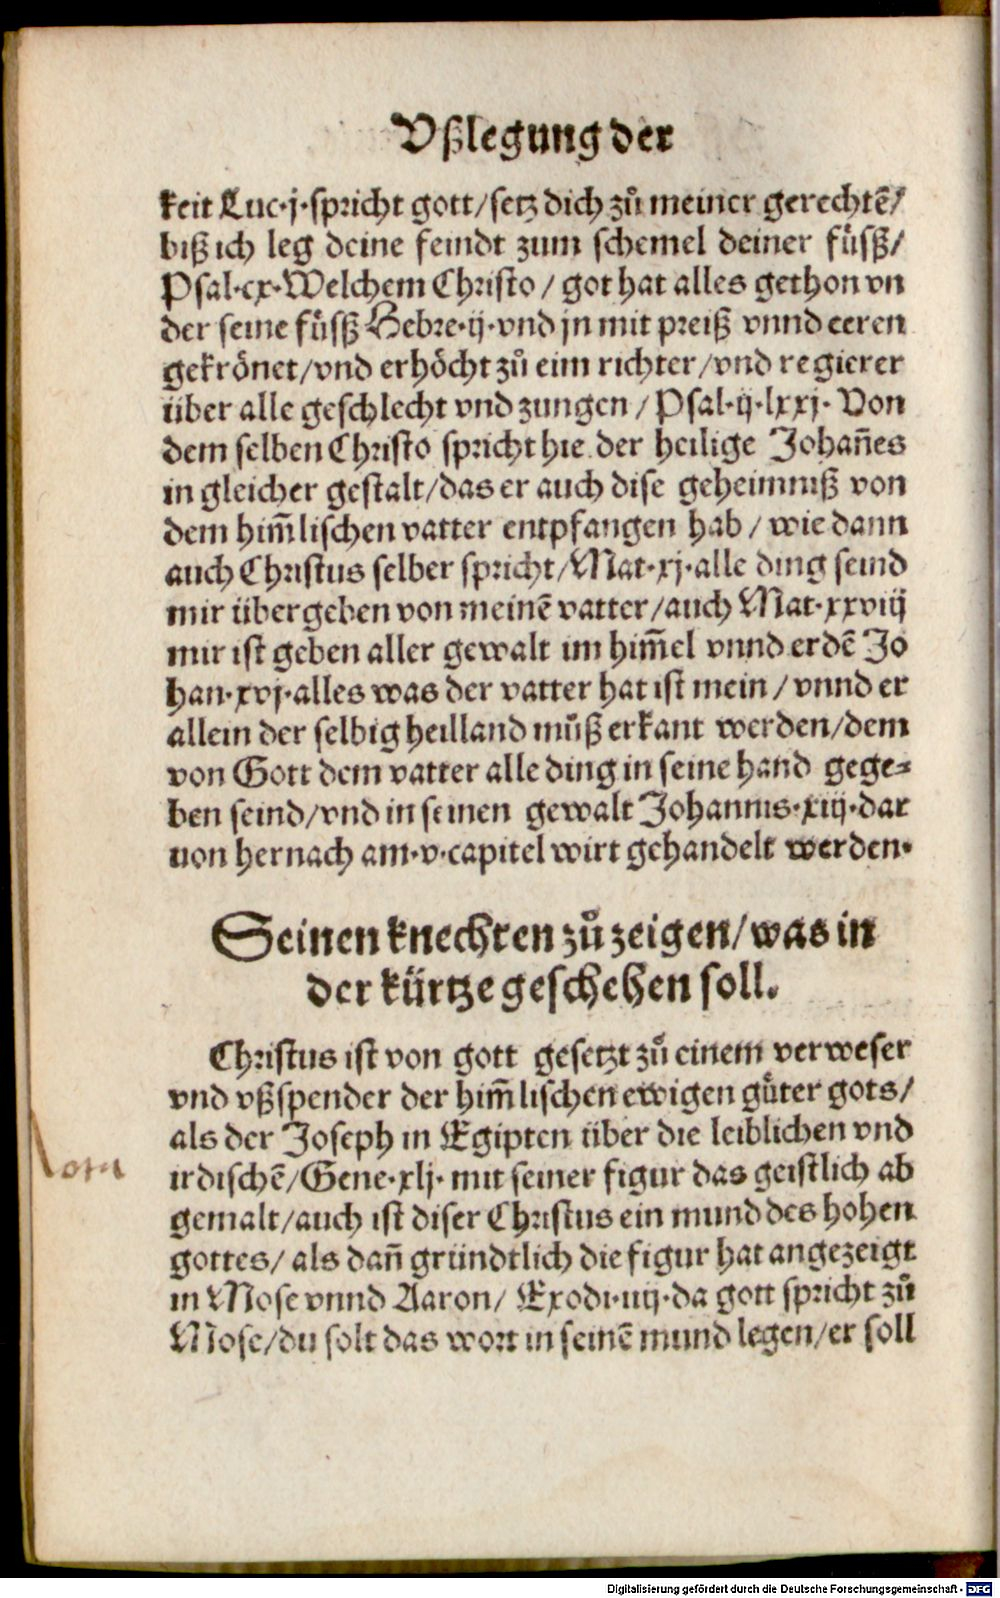 Vßlegung der
keit Luc·j·spricht gott/setz dich zů meiner gerechtẽ/
biß ich leg deine feindt zum schemel deiner fůsß/
Psal·cx·Welchem Christo/got hat alles gethon vn
der seine fůsß Hebre·ij·vnd jn mit preiß vnnd eeren
gekrönet/vnd erhöcht zů eim richter/vnd regierer
über alle geschlecht vnd zungen/Psal·ij·lxxj·Von
dem selben Christo spricht hie der heilige Johañes
in gleicher gestalt/das er auch dise geheimniß von
dem him̃lischen vatter entpfangen hab/wie dann
auch Christus selber spricht/Mat·xj·alle ding seind
mir übergeben von meinẽ vatter/auch Mat·xxviij
mir ist geben aller gewalt im him̃el vnnd erdẽ Jo
han·xvj·alles was der vatter hat ist mein/vnnd er
allein der selbig heilland můß erkant werden/dem
von Gott dem vatter alle ding in seine hand gege⸗
ben seind/vnd in seinen gewalt Johannis·xiij·dar
uon hernach am·v·capitel wirt gehandelt werden·
Seinen knechten zů zeigen/was in
der kürtze geschehen soll.
Christus ist von gott gesetzt zů einem verweser
vnd vßspender der him̃lischen ewigen gůter gots/
als der Joseph in Egipten über die leiblichen vnd
irdischẽ/Gene·xlj·mit seiner figur das geistlich ab
gemalt/auch ist diser Christus ein mund des hohen
gottes/als dañ gründtlich die figur hat angezeigt
in Mose vnnd Aaron/Exodi·iiij·da gott spricht zů
Mose/du solt das wort in seinẽ mund legen/er soll
Digitalisierung gefördert durch die Deutsche Forschungsgemeinschaft - DFG